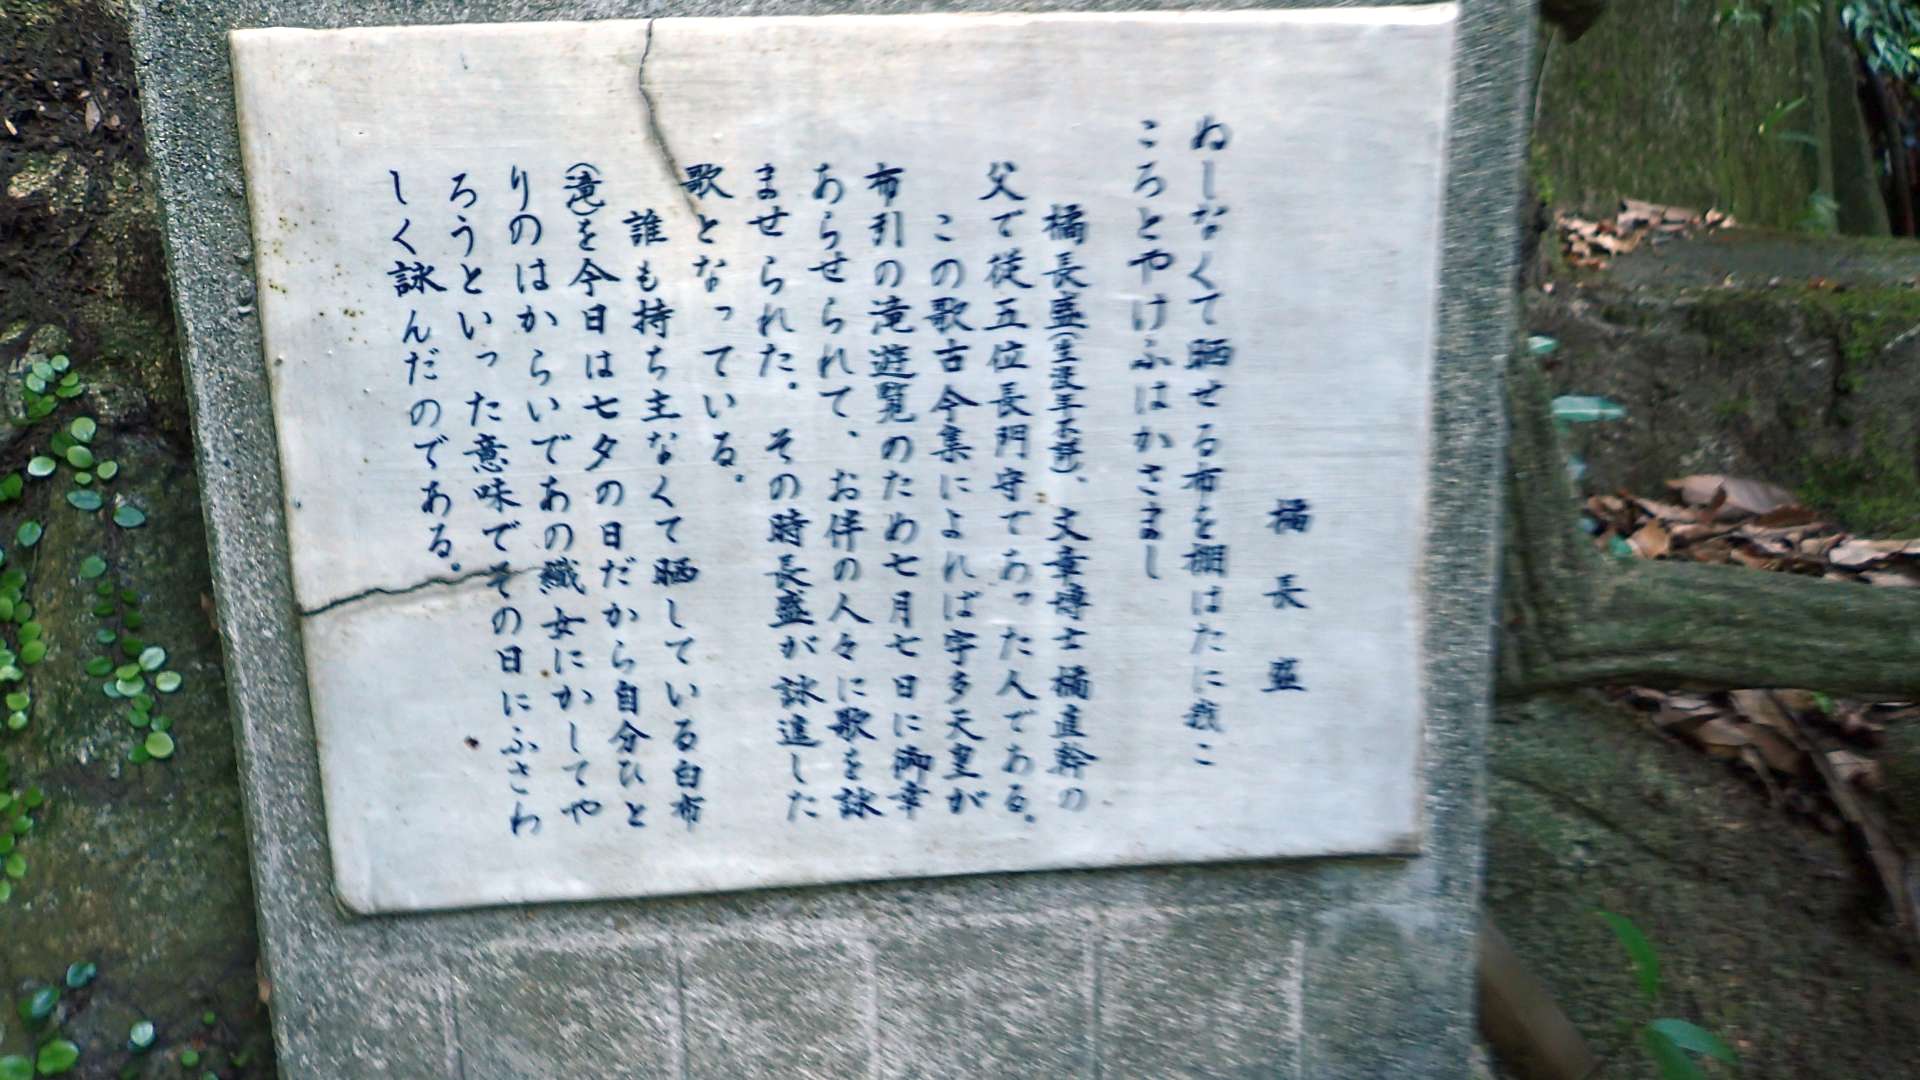 橘長盛
ぬしなくて晒せる布を棚はたに我こ
ころとやけふはかさまし
橘長盛(生没年不詳)、文章博士橘直幹の
父で従五位長門守であった人である。
この歌古今集によれば宇多天皇が
布引の滝遊覧のため七月七日に御幸
あらせられて、お伴の人々に歌を詠
ませられた。その時長盛が詠進した
歌となっている。
誰も持ち主なくて晒している白布
(滝)を今日は七夕の日だから自分ひと
りのはからいであの織女にかしてや
ろうといった意味でその日にふさわ
しく詠んだのである。